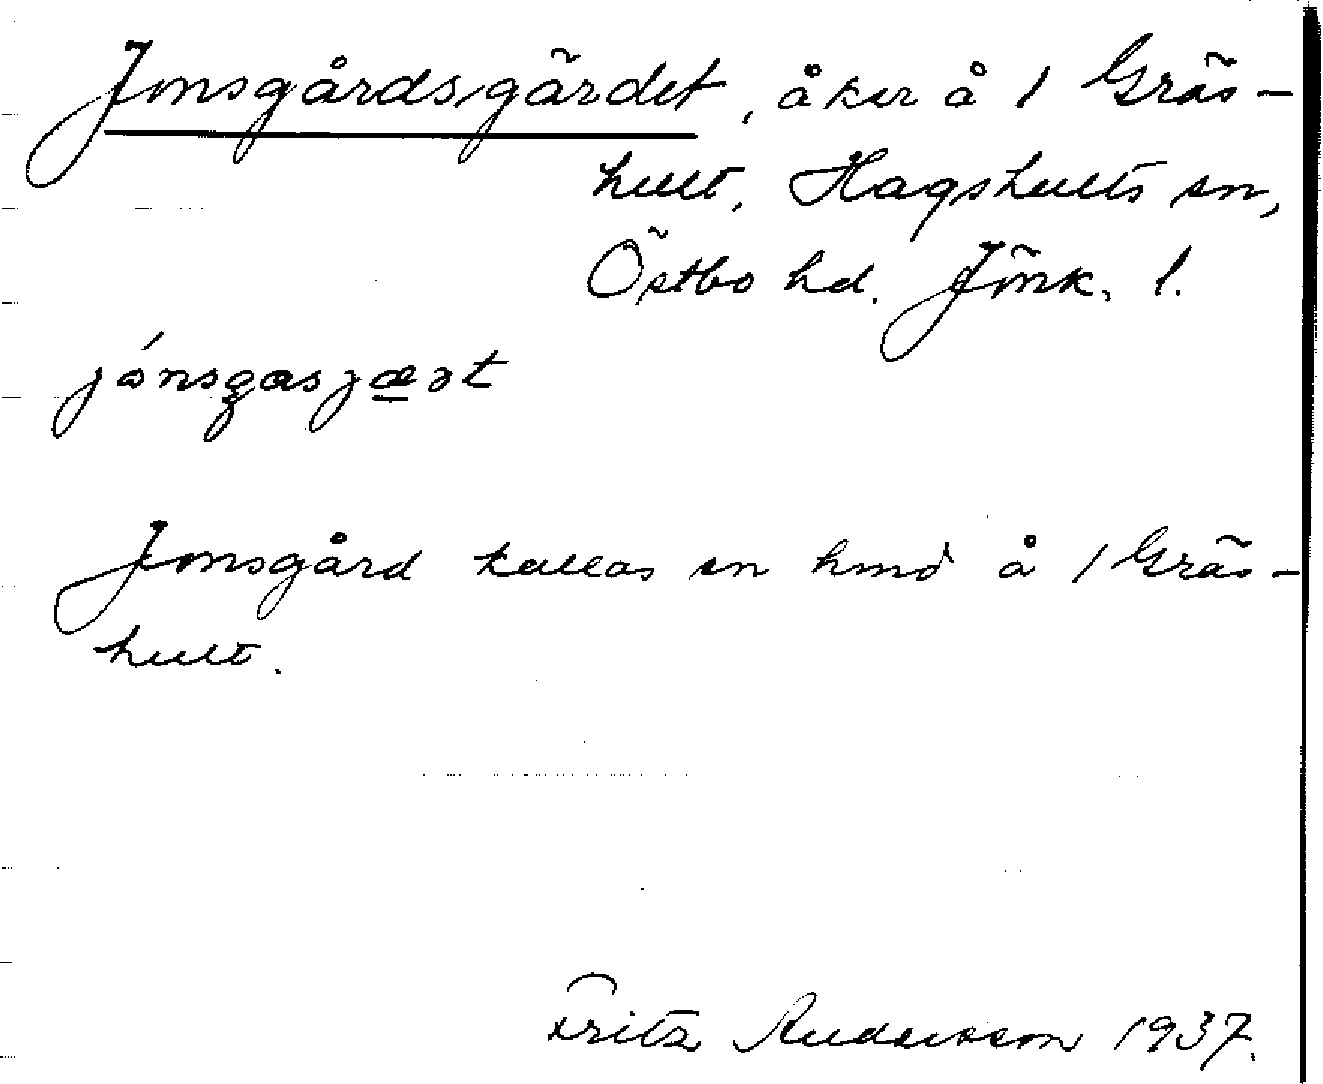 Jonsgårdsgärdet, åker å 1 Gräs-
hult, Hagshults sn,
Östbo hd. Jönk. l.
jónsgasjæət
Jonsgård kallas en hmd å 1 Gräs-
hult.
Fritz Andersson 1937.